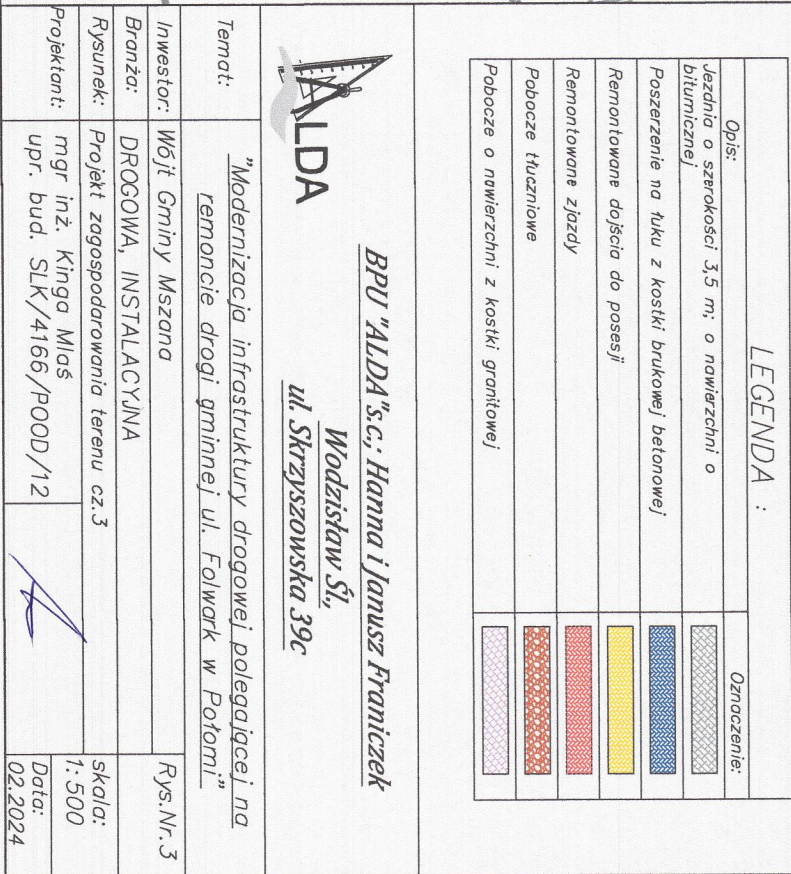 LEGENDA :
Opis: Oznaczenie:
Jezdnia o szerokości 3,5 m; o nawierzchni o
bitumicznej
Poszerzenie na łuku z kostki brukowej betonowej
Remontowane dojścia do posesji
Remontowane zjazdy
Pobocze tłuczniowe
Pobocze o nawierzchni z kostki granitowej
ALDA
BPU "ALDA"s.c.; Hanna i Janusz Franiczek
Wodzisław Śl.,
ul. Skrzyszowska 39c
Temat: "Modernizacja infrastruktury drogowej polegającej na
remoncie drogi gminnej ul. Folwark w Połomi"
Inwestor: Wójt Gminy Mszana Rys.Nr.3
Branża: DROGOWA, INSTALACYJNA
Rysunek: Projekt zagospodarowania terenu cz.3
skala:
1: 500
Projektant: mgr inż. Kinga Mlaś
upr. bud. SLK/4166/POOD/12
Data:
02.2024